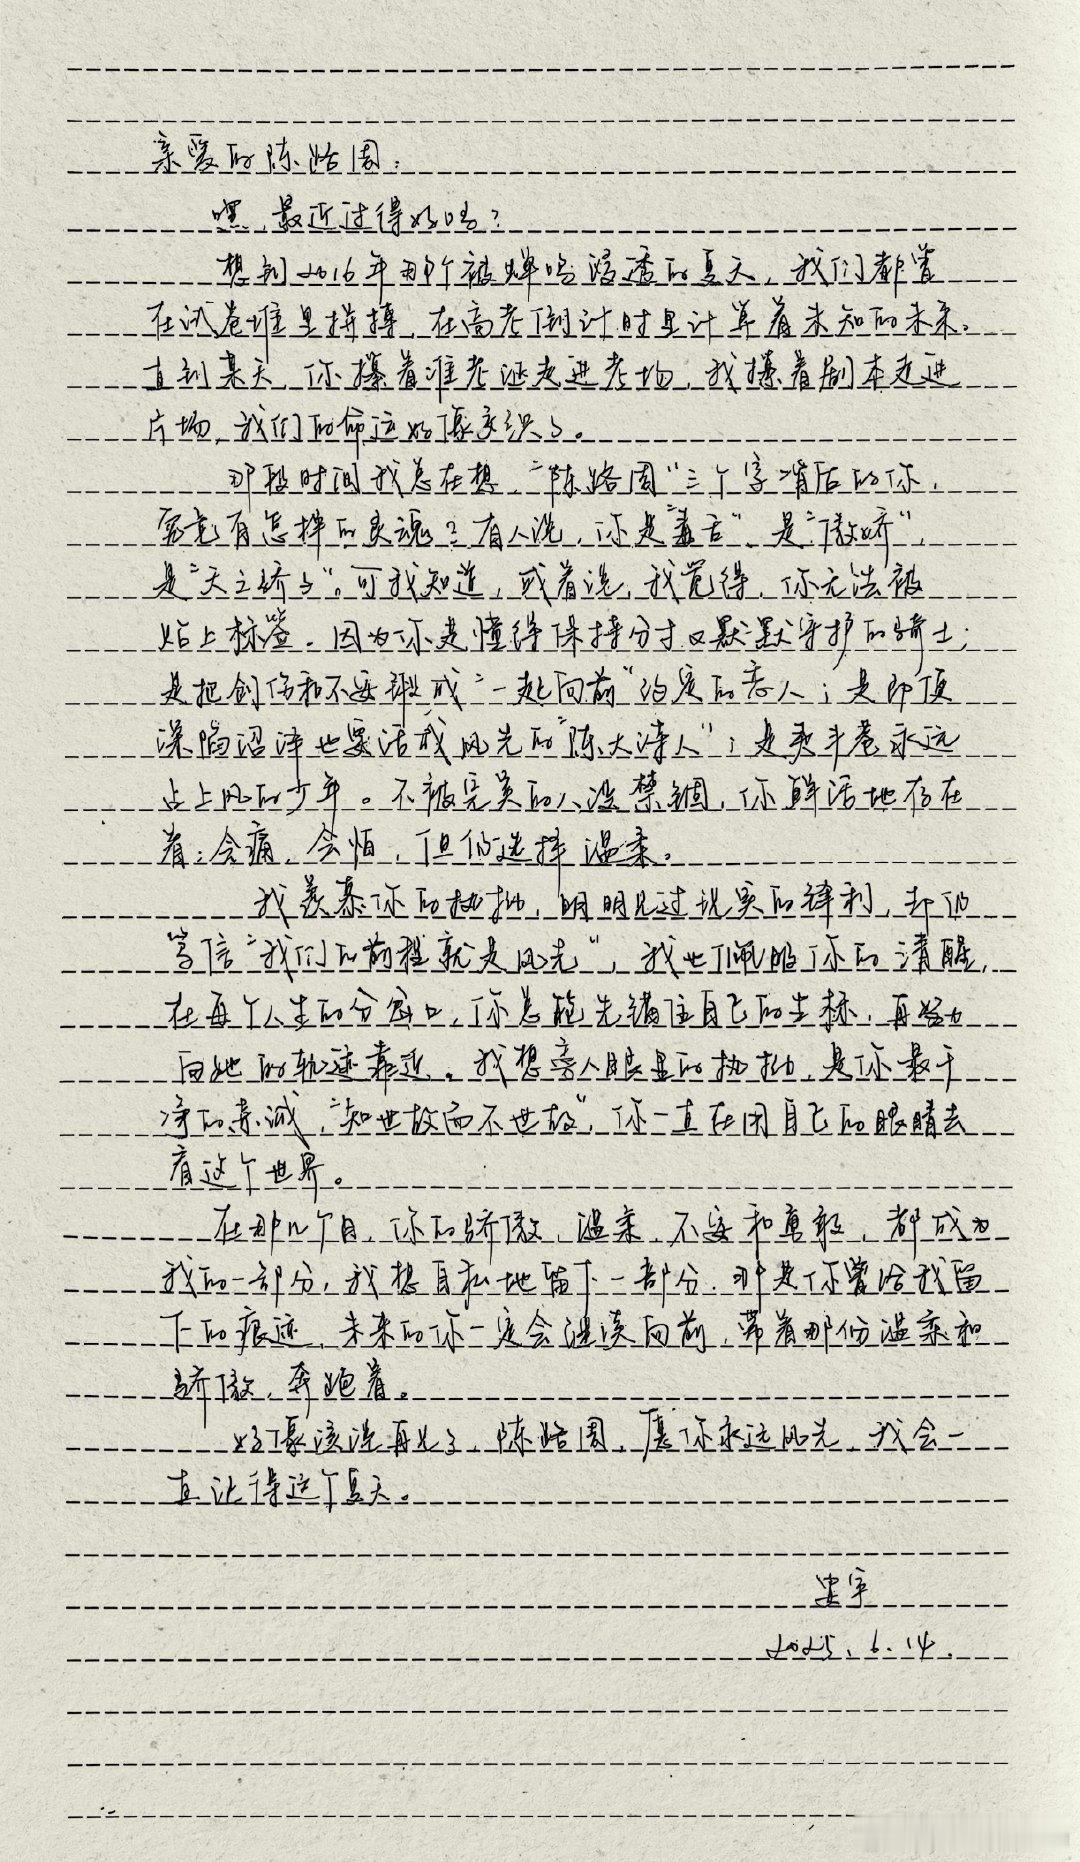 亲爱的陈路周：
嘿，最近过得好吗？
想到2016年那个被蝉鸣浸透的夏天，我们都曾
在试卷堆里拼搏，在高考倒计时里计算着未知的未来。
直到某天，你攥着准考证走进考场，我攥着剧本走进
片场，我们的命运好像交织了。
那段时间我总在想，“陈路周”三个字背后的你，
究竟有怎样的灵魂？有人说，你是“毒舌”，是“傲娇”，
是“天之骄子”。可我知道，或者说，我觉得，你无法被
贴上标签。因为你是懂得保持分寸又默默守护的骑士；
是把创伤和不安酿成“一起向前”约定的恋人；是即便
深陷沼泽也要活成风光的“陈大诗人”；是夷丰巷永远
占上风的少年。不被完美的人设禁锢，你鲜活地存在
着：会痛，会怕，但仍选择温柔。
我羡慕你的执拗，明明见过现实的锋利，却仍
笃信“我们的前程就是风光”，我也佩服你的清醒，
在每个人生的分岔口，你总能先锚住自己的坐标，再努力
向她的轨迹靠近。我想旁人眼里的执拗，是你最干
净的赤诚，“知世故而不世故”，你一直在用自己的眼睛去
看这个世界。
在那几个月，你的骄傲、温柔、不安和勇敢，都成为
我的一部分，我想自私地留下一部分，那是你曾给我留
下的痕迹，未来的你一定会继续向前，带着那份温柔和
骄傲，奔跑着。
好像该说再见了，陈路周，愿你永远风光，我会一
直记得这个夏天。
安宇
2025.6.14.